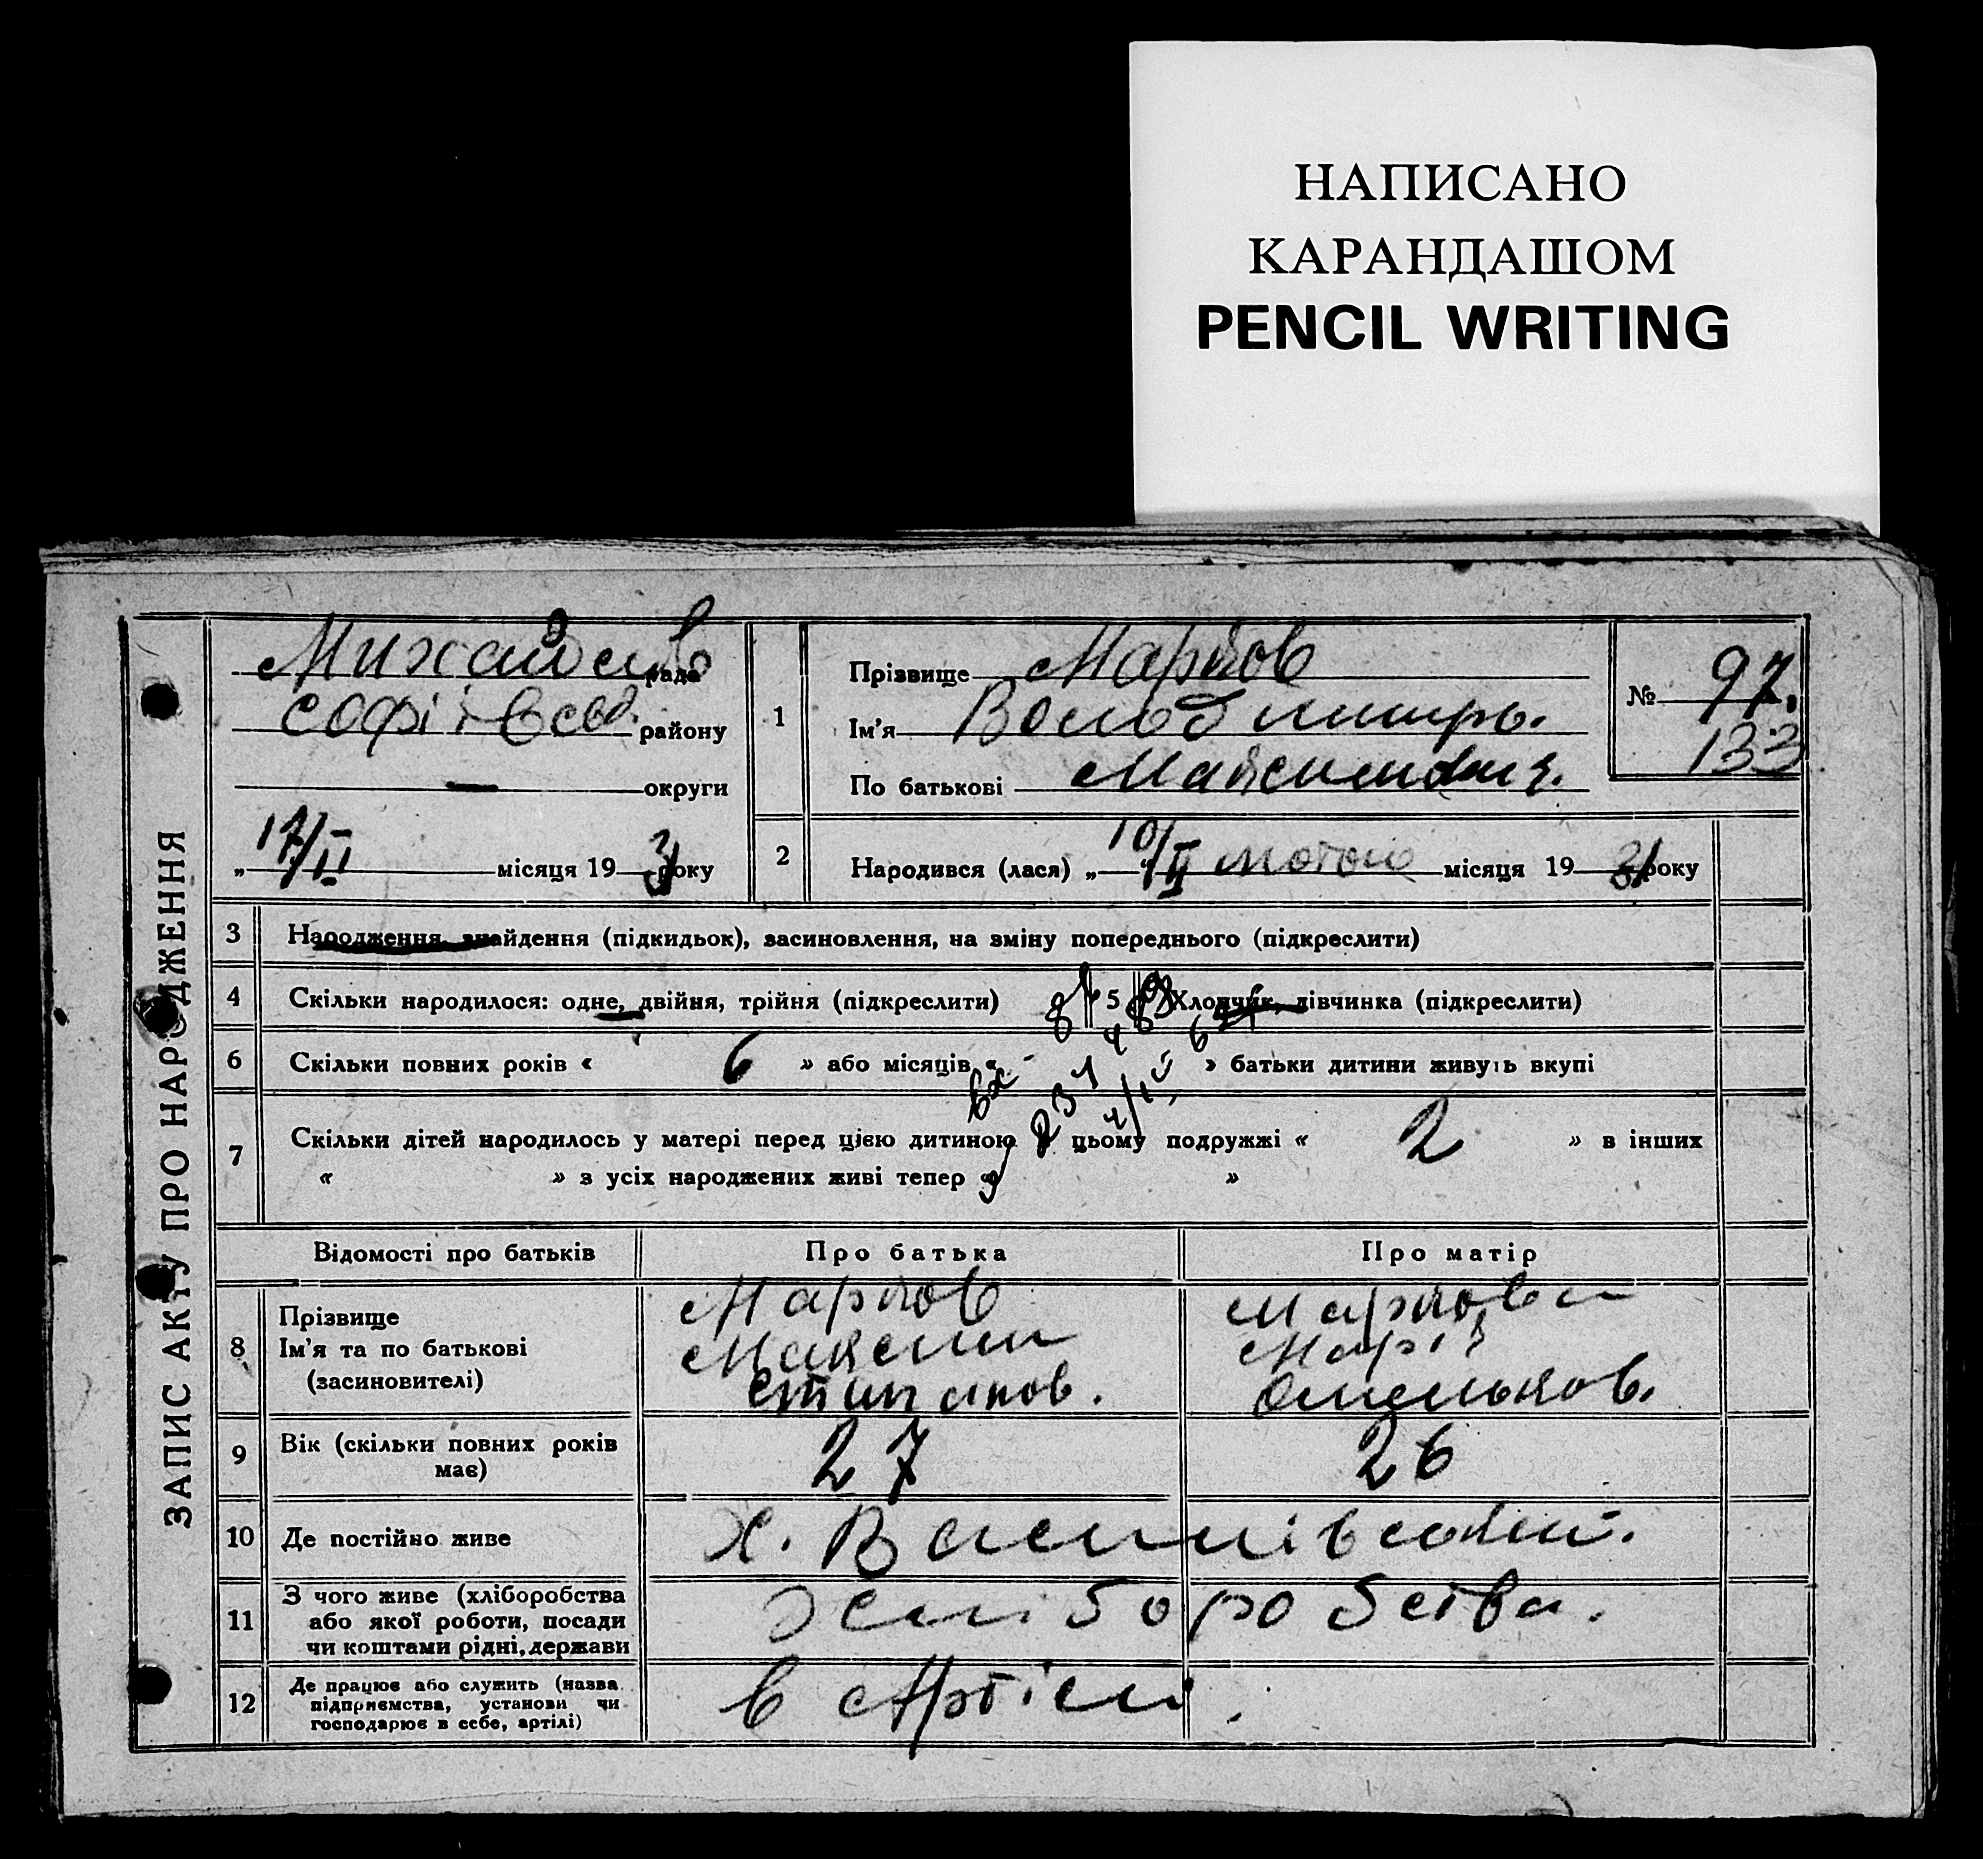 НАПИСАНО
КАРАНДАШОМ
PENCIL WRITING
ЗАПИС АКТУ ПРО НАРОДЖЕННЯ
рада
району
— округи
„ 17/II місяця 19 31 року
1
Прізвище Марков
Ім'я Володимир.
По батькові Максимович.
№ 97.
133
2 Народився (лася) „ 10/II лютого місяця 19 31 року
3 Народження, знайдення (підкидьок), засиновлення, на зміну попереднього (підкреслити)
4 Скільки народилося: одне, двійня, трійня (підкреслити)
5 Хлопчик, дівчинка (підкреслити)
6 Скільки повних років « 6 » або місяців « - » батьки дитини живуть вкупі
7 Скільки дітей народилось у матері перед цією дитиною цьому подружжі « 2 » в інших
« » з усіх народжених живі тепер « »
Відомості про батьків Про батька Про матір
8 Прізвище
Ім'я та по батькові
(засиновителі)
Марков
Максим
Степанов.
Маркова
Марія
Омельков.
9 Вік (скільки повних років
має)
27 26
10 Де постійно живе
х.
11 З чого живе (хліборобства
або якої роботи, посади
чи коштами рідні, держави
хліборобства.
12 Де працює або служить (назва
підприємства, установи чи
господарює в себе, артілі)
в Артілі.